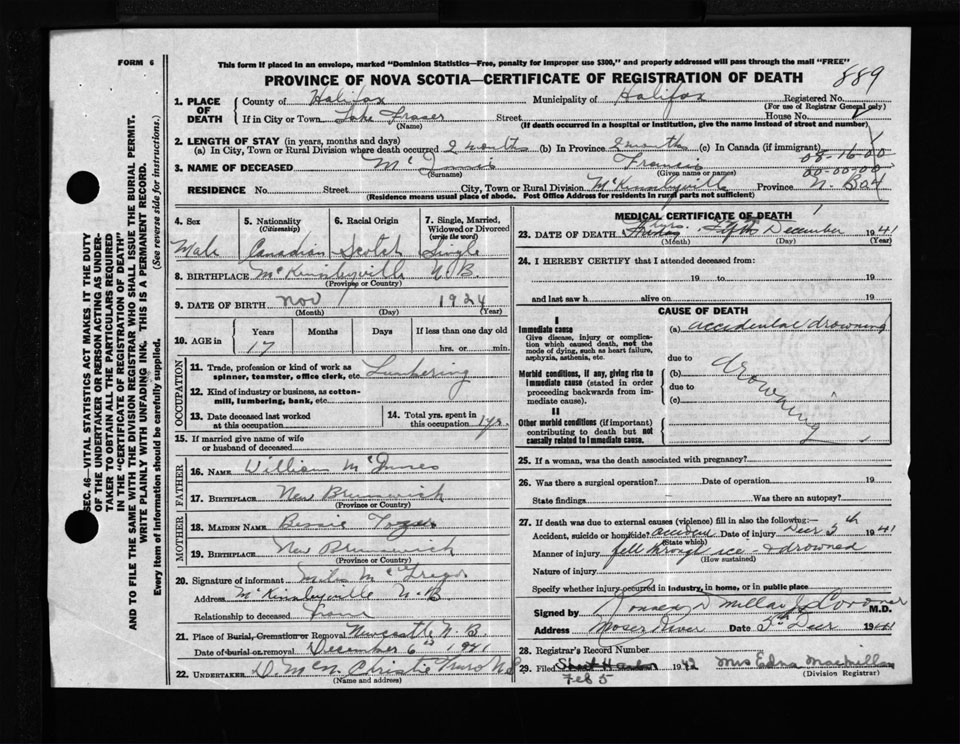 FORM 6
This form if placed in an envelope, marked "Dominion Statistics—Free, penalty for improper use $300," and properly addressed will pass through the mail "FREE"
PROVINCE OF NOVA SCOTIA—CERTIFICATE OF REGISTRATION OF DEATH
889
1. PLACE OF DEATH
County of Halifax Municipality of Halifax Registered No.
(For use of Registrar General only)
If in City or Town Lake Fraser Street House No.
(Name) (If death occurred in a hospital or institution, give the name instead of street and number)
2. LENGTH OF STAY (in years, months and days)
(a) In City, Town or Rural Division where death occurred 2 months (b) In Province 2 months (c) In Canada (if immigrant)
08-16-00
3. NAME OF DECEASED McInnis Francis
(Surname) (Given name or names)
00-00-00
RESIDENCE No. Street City, Town or Rural Division McKinleyville Province N. B.
(Residence means usual place of abode. Post Office Address for residents in rural parts not sufficient)
4. Sex
Male
5. Nationality
(Citizenship)
Canadian
6. Racial Origin
Scotch
7. Single, Married, Widowed or Divorced
(write the word)
Single
8. BIRTHPLACE McKinleyville N.B.
(Province or Country)
9. DATE OF BIRTH Nov 1924
(Month) (Day) (Year)
10. AGE in
Years Months Days If less than one day old
17 hrs. or min.
OCCUPATION
11. Trade, profession or kind of work as spinner, teamster, office clerk, etc. Lumbering
12. Kind of industry or business, as cotton-mill, lumbering, bank, etc.
13. Date deceased last worked at this occupation
14. Total yrs. spent in this occupation 1 yr.
15. If married give name of wife or husband of deceased
FATHER
16. NAME William McInnes
17. BIRTHPLACE New Brunswick
(Province or Country)
MOTHER
18. MAIDEN NAME Bessie Tozer
19. BIRTHPLACE New Brunswick
(Province or Country)
20. Signature of informant
Address McKinleyville N.B.
Relationship to deceased
21. Place of Burial, Cremation or Removal Newcastle N.B.
Date of burial or removal December 6th 1941
22. UNDERTAKER D. McN. Christie Truro NS
(Name and address)
MEDICAL CERTIFICATE OF DEATH
23. DATE OF DEATH Fifth December 1941
(Month) (Day) (Year)
24. I HEREBY CERTIFY that I attended deceased from:
19 to 19
and last saw h alive on 19
CAUSE OF DEATH
I
Immediate cause
Give disease, injury or complication which caused death, not the mode of dying, such as heart failure, asphyxia, asthenia, etc.
(a) accidental drowning
due to
Morbid conditions, if any, giving rise to immediate cause (stated in order proceeding backwards from immediate cause).
(b) drowning
due to
(c)
II
Other morbid conditions (if important) contributing to death but not causally related to immediate cause.
25. If a woman, was the death associated with pregnancy?
26. Was there a surgical operation? Date of operation 19
State findings Was there an autopsy?
27. If death was due to external causes (violence) fill in also the following:—
Accident, suicide or homicide? accident Date of injury Decr 5th 1941
(State which)
Manner of injury fell through ice - & drowned
(How sustained)
Nature of injury
Specify whether injury occurred in industry, in home, or in public place
Signed by Millar Coroner M.D.
Address Moser River Date 5th Decr 1941
28. Registrar's Record Number
29. Filed Sheet Harbor 1942 Mrs Edna Macmillan
Feb 5 (Division Registrar)
SEC. 46—VITAL STATISTICS ACT MAKES IT THE DUTY OF THE UNDERTAKER OR PERSON ACTING AS UNDERTAKER TO OBTAIN ALL THE PARTICULARS REQUIRED IN THE "CERTIFICATE OF REGISTRATION OF DEATH" AND TO FILE THE SAME WITH THE DIVISION REGISTRAR WHO SHALL ISSUE THE BURIAL PERMIT.
WRITE PLAINLY WITH UNFADING INK. THIS IS A PERMANENT RECORD.
Every item of information should be carefully supplied. (See reverse side for instructions.)